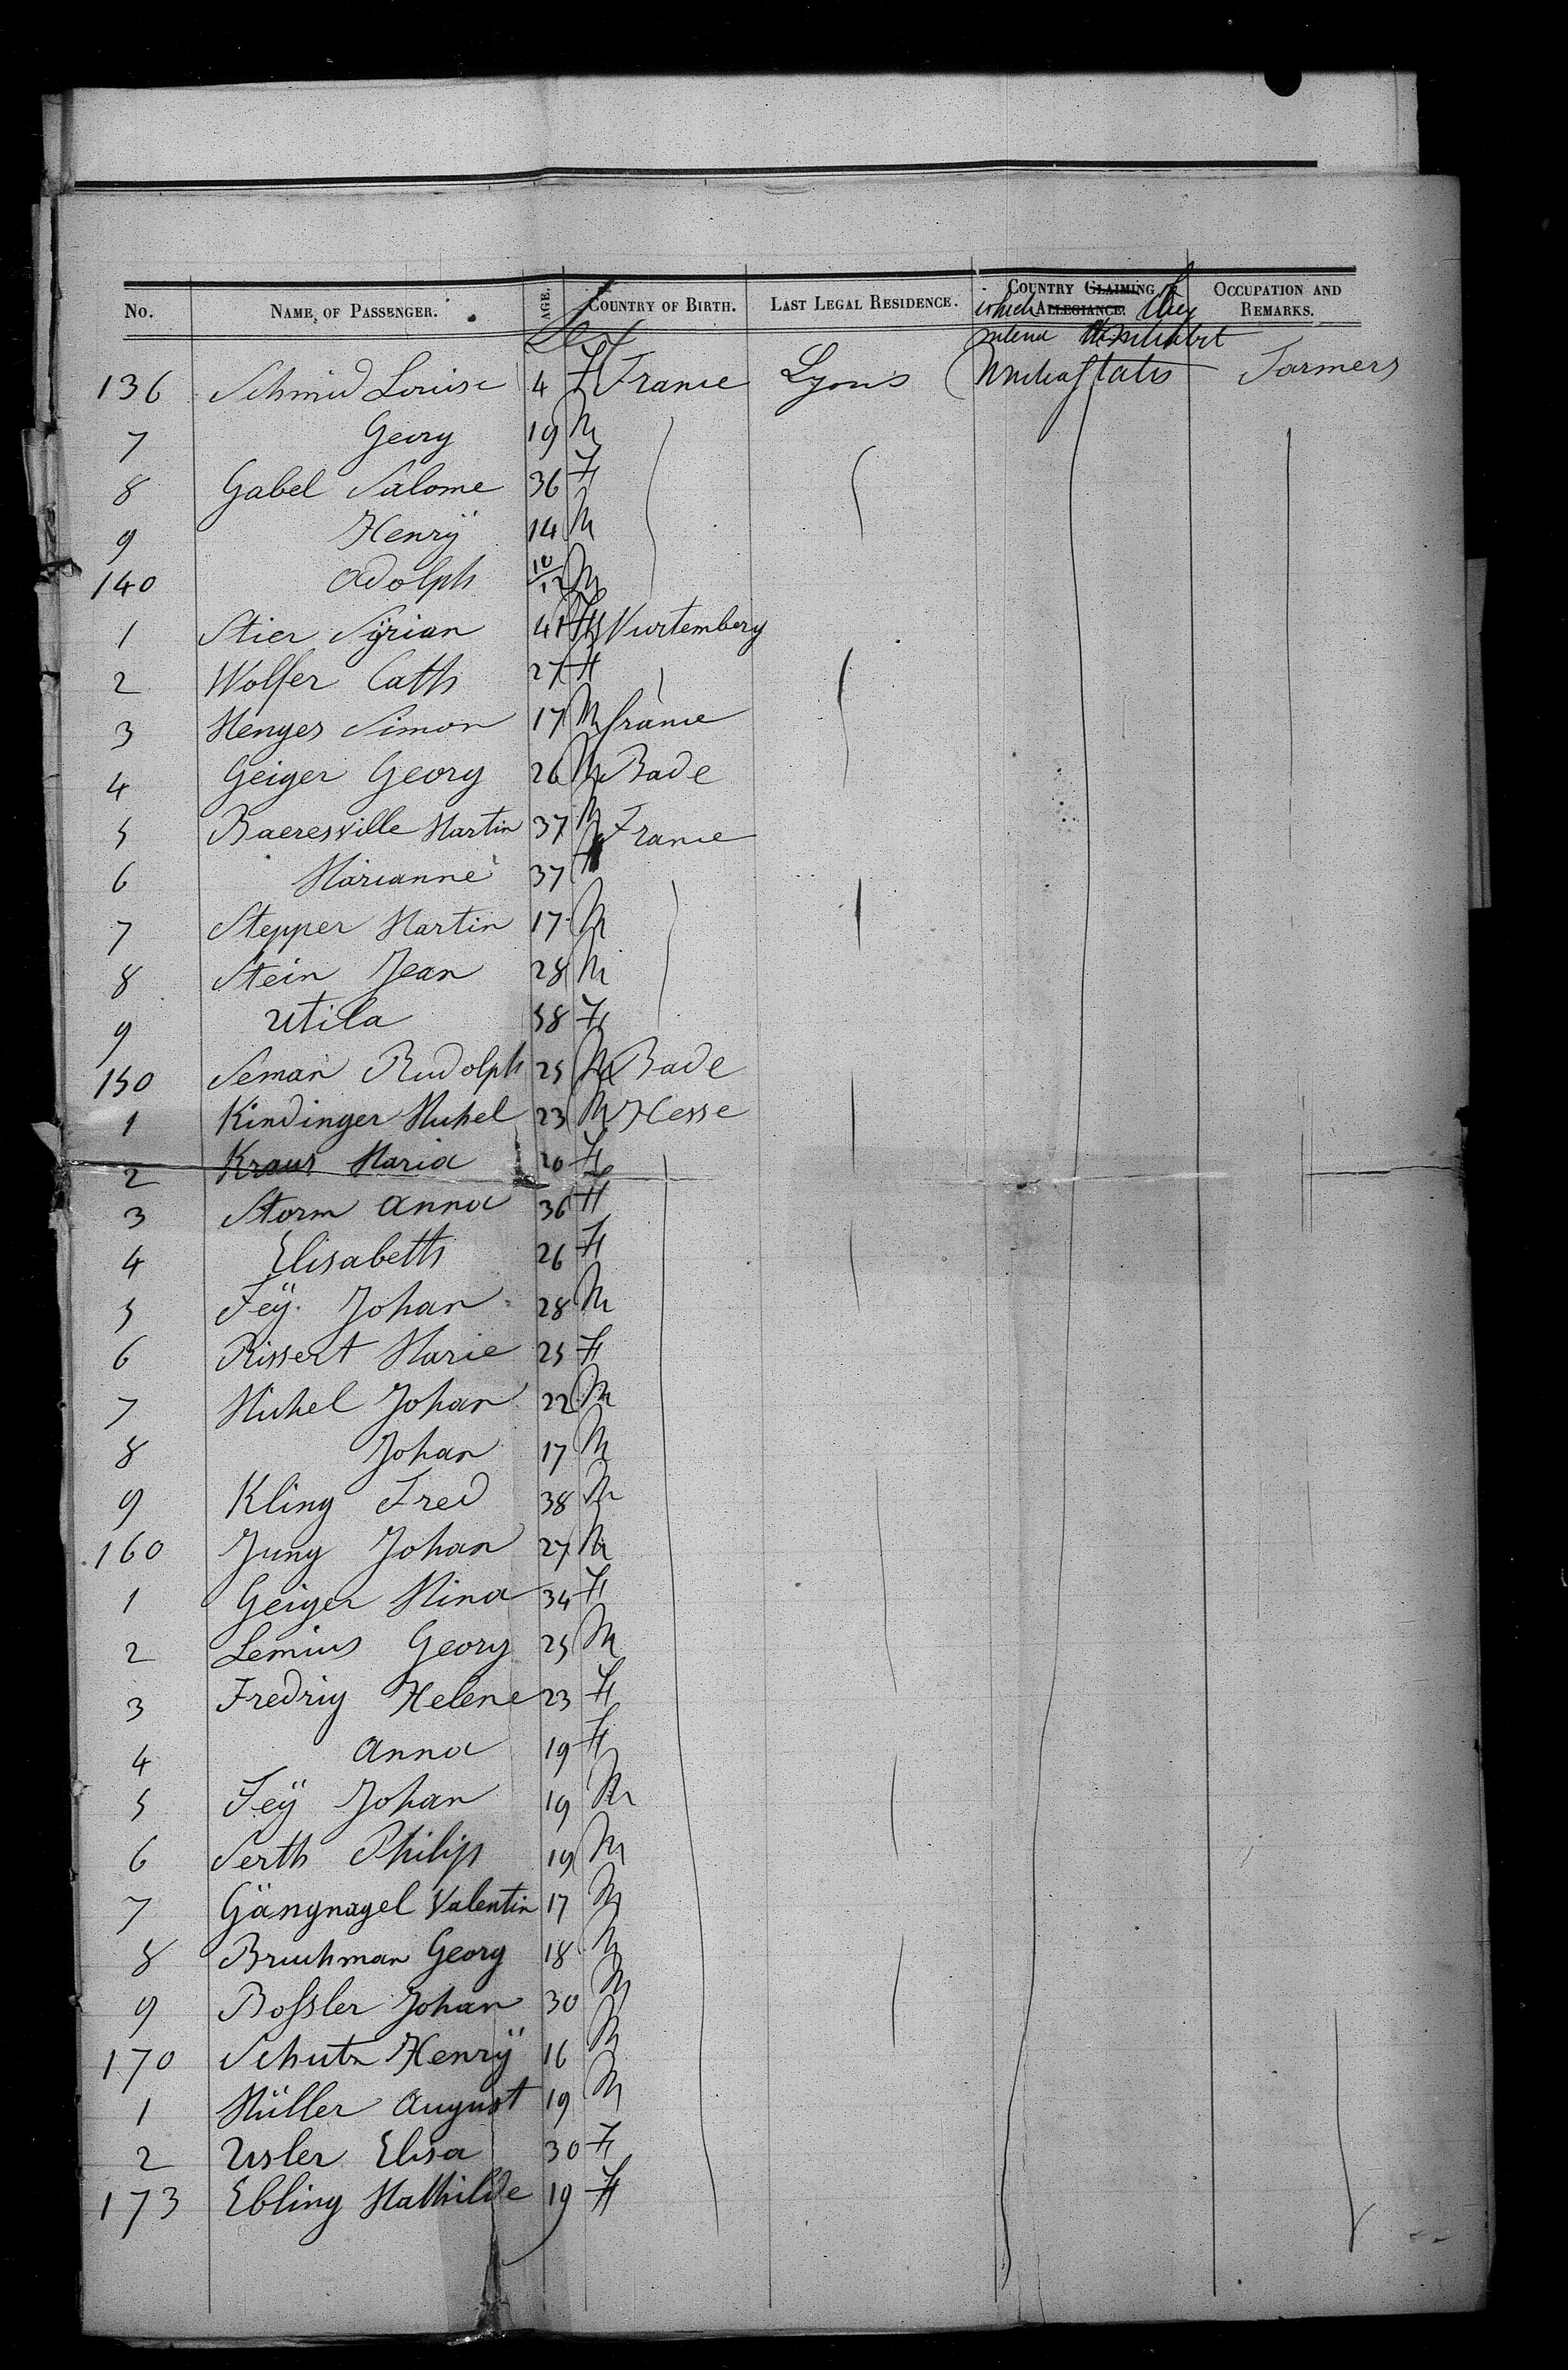 No. NAME OF PASSENGER. AGE. Sex COUNTRY OF BIRTH. LAST LEGAL RESIDENCE. COUNTRY CLAIMING ALLEGIANCE. which they intend to inhabit OCCUPATION AND REMARKS.
136 Schmid Louise 4 F France Lyons United States Farmers
7 Georg 19 M
8 Gabel Salome 36 F
9 Henrÿ 14 M
140 Adolph 10/12 M
1 Stier Sÿrian 41 Wurtemberg
2 Wolfer Cath 27 F
3 Menges Simon 17 M france
4 Geiger Georg 26 M Bade
5 Baeresville Martin 37 M France
6 Marianne 37 F
7 Stepper Martin 17 M
8 Stein Jean 28 M
9 Utila 58 F
150 Seman Rudolph 25 M Bade
1 Kindinger Michel 23 M Hesse
2 Kraus Maria 20 F
3 Storm Anna 36 F
4 Elisabeth 26 F
5 Feÿ Johan 28 M
6 Rissert Marie 25 F
7 Michel Johan 22 M
8 Johan 17 M
9 Kling Fred 38 M
160 Jung Johan 27 M
1 Geiger Mina 34 F
2 Lemius Georg 25 M
3 Fredrig Helene 23 F
4 Anna 19 F
5 Feÿ Johan 19 M
6 Serth Philip 19 M
7 Gängnagel Valentin 17 M
8 Bruchman Georg 18 M
9 Boſsler Johan 30 M
170 Schutz Henrÿ 16 M
1 Müller August 19 M
2 Usler Elisa 30 F
173 Ebling Mathilde 19 F